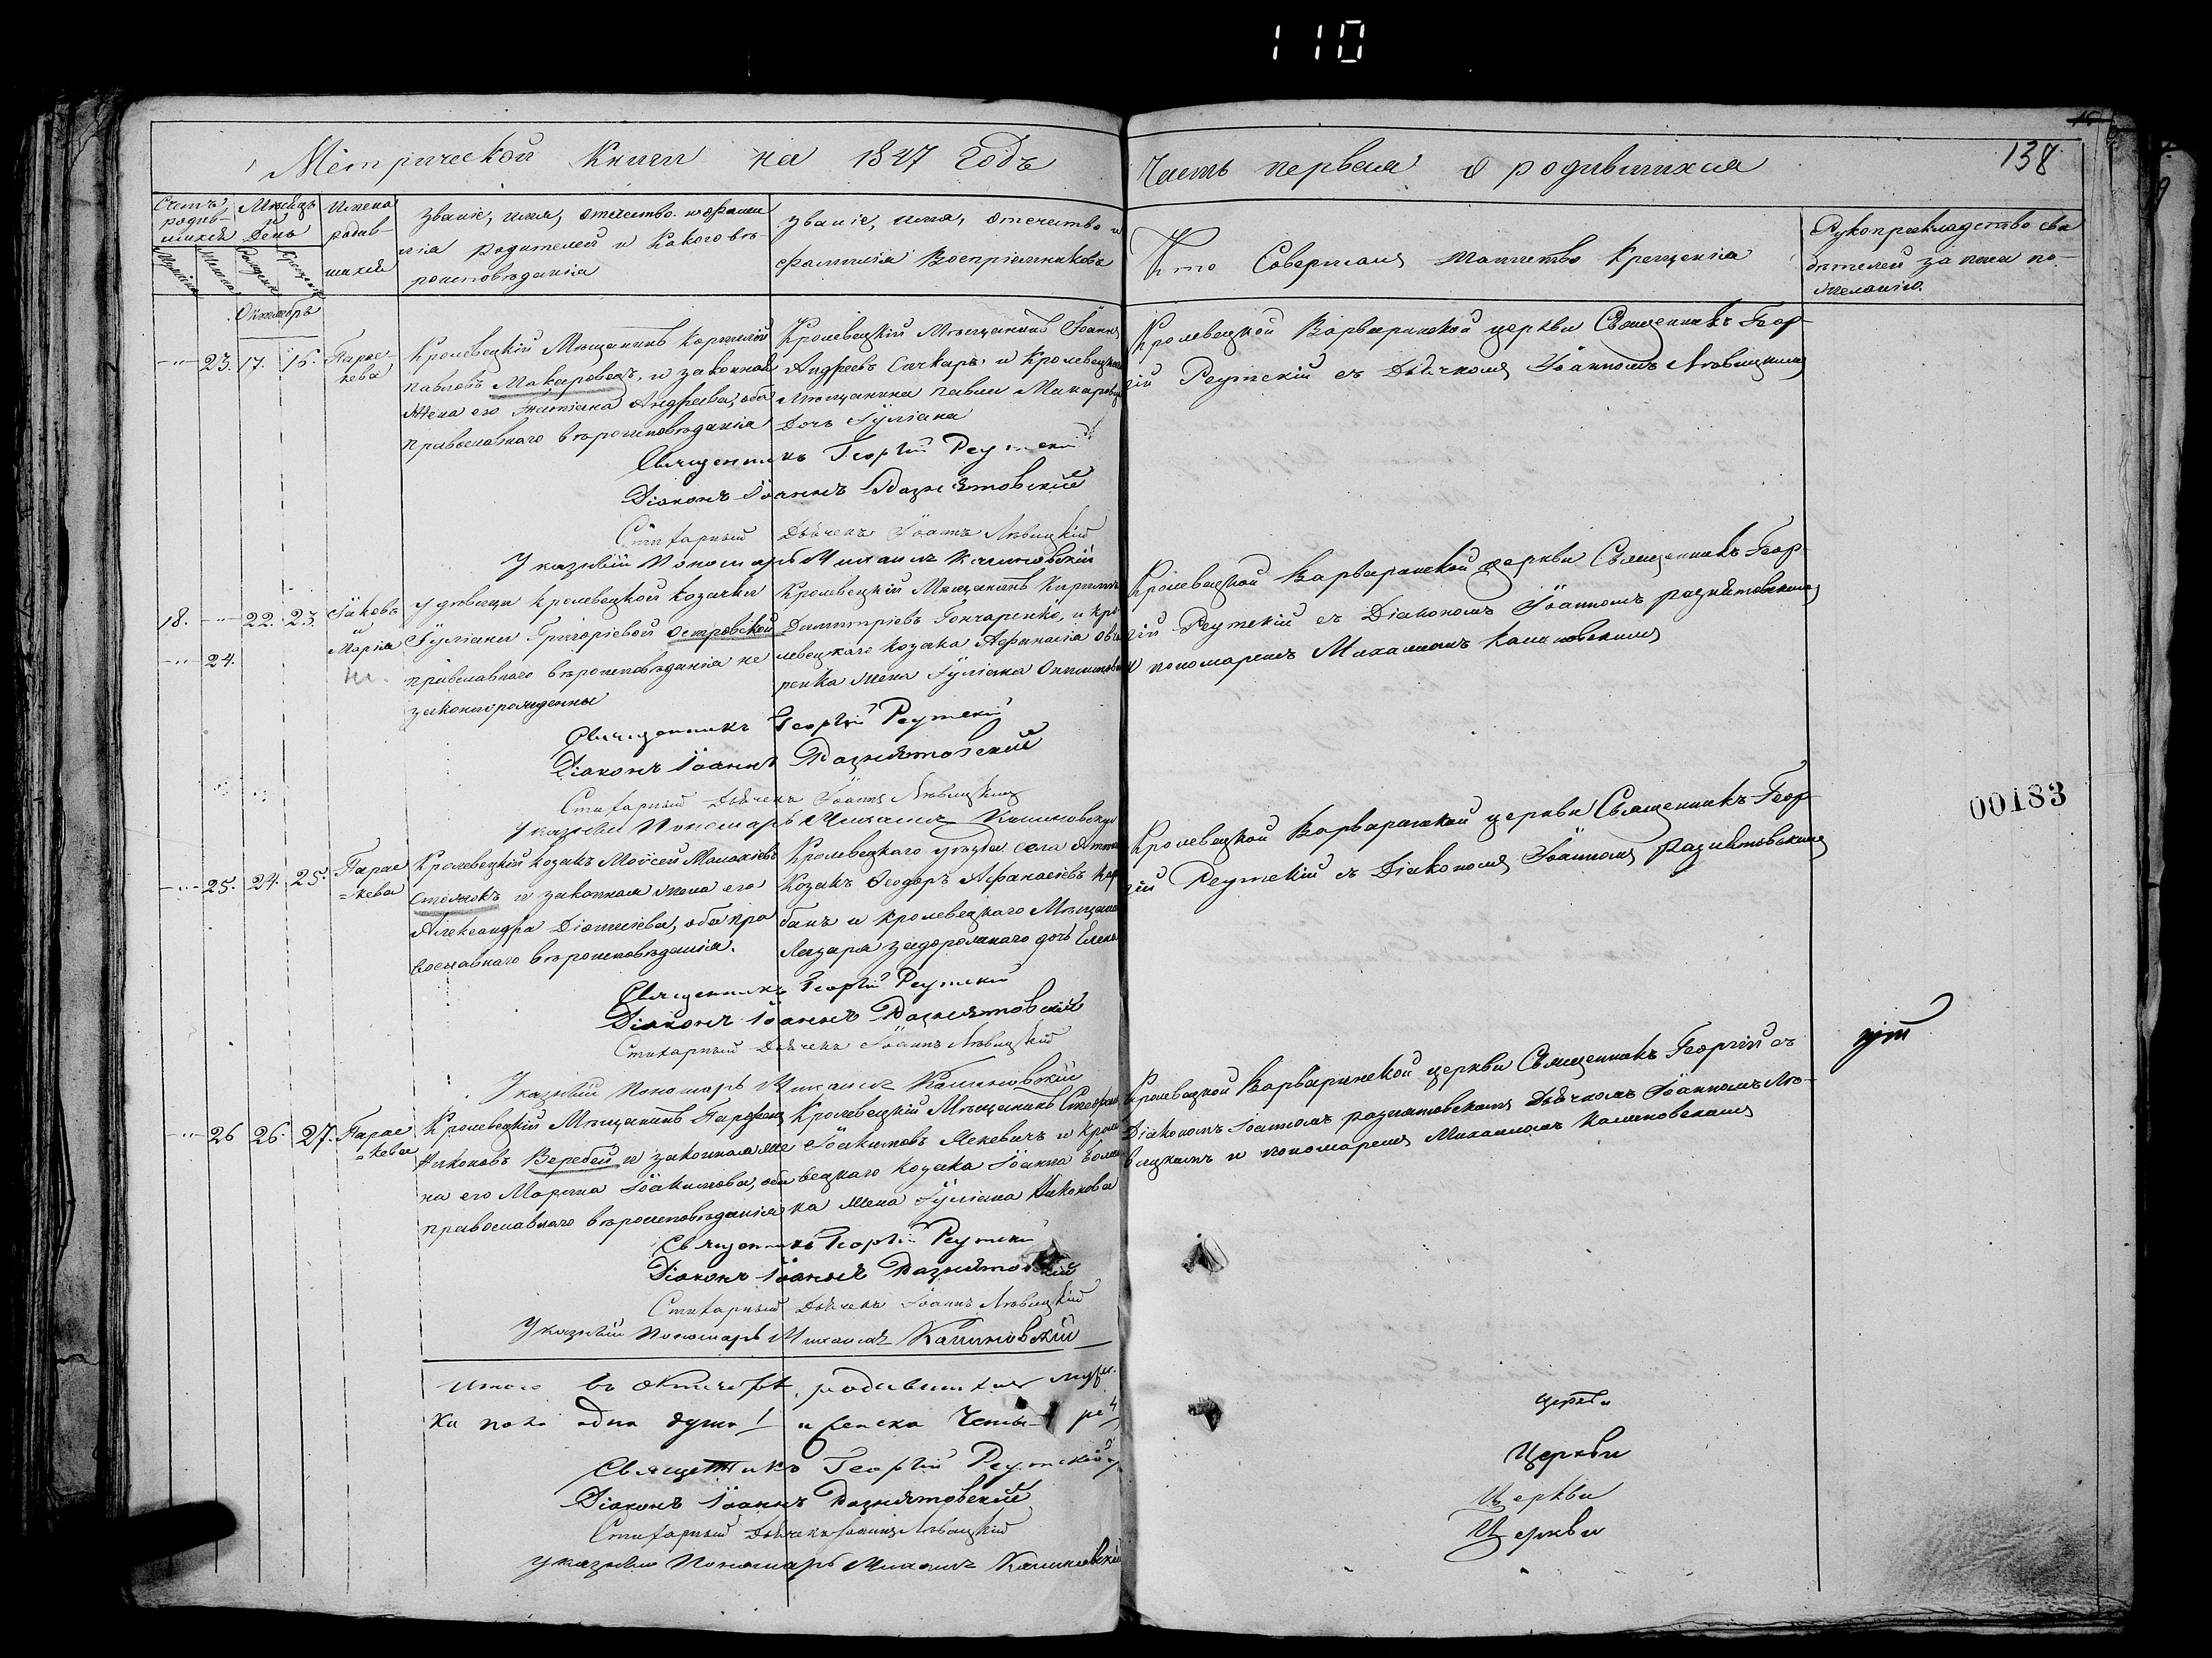 110
Метрической Книги на 1847 Годъ
Часть первая о родившихся
138
Счетъ родив-шихся
Мѣсяцъ и День
Имена родив-шихся
Званіе, имя, отечество и фами-
лія родителей и какого вѣ-
роисповѣданія
Званіе, имя, отечество и
фамилія Воспріемниковъ
Кто Совершалъ таинство Крещенія
Рукоприкладство сви
дѣтелей записи по
желанію.
Мужеска
Женска
Рожденія
Крещенія
Октябрь
23. 17. 18.
Парас-
кева
Кролевецкій Мѣщанинъ Корнилій
Павловъ Макаровецъ, и законная
жена его Татіана Андреева, оба
православнаго вѣроисповѣданія
Кролевецкій Мѣщанинъ Іоаннъ
Андреевъ Сачкаръ и Кролевецкаго
Мѣщанина Павла Макаровца
Дочь Іуліана
Кролевецкой Варваринской церкви Священникъ Геор-
гій Реутскій съ Дьячкомъ Іоанномъ Львицкимъ
Священникъ Георгій Реутскій
Діаконъ Іоаннъ Разнятовскій
Стихарный Дьячекъ Іоаннъ Львицкій
Указный Пономарь Михаилъ Калиновскій
18. 22. 23.
24.
Іаковъ
Марія
У дѣвицы Кролевецкой козачки
Іуліаны Григоріевой Островской
православнаго вѣроисповѣданія не
законнорожденны
Кролевецкій Мѣщанинъ
Димитріевъ Гончаренко, и Кро
левецкаго козака Афанасія
ренка жена Іуліана
Кролевецкой Варваринской церкви Священникъ Геор-
гій Реутскій съ Діакономъ Іоанномъ Разнятовскимъ
и пономаремъ Михаиломъ Калиновскимъ
Священникъ Георгій Реутскій
Діаконъ Іоаннъ Разнятовскій
Стихарный Дьячекъ Іоаннъ Львицкій
Указный Пономарь Михаилъ Калиновскій
00183
25. 24. 25.
Парас
=кева
Кролевецкій козакъ Моѵсей
и законная жена его
Александра, оба пра
вославнаго вѣроисповѣданія.
Кролевецкаго уѣзда села
Козакъ Ѳеодоръ Афанасіевъ
банъ и Кролевецкаго Мѣщанина
Лазаря Задорожнаго дочь Елена
Кролевецкой Варваринской церкви Священникъ Геор-
гій Реутскій съ Діакономъ Іоанномъ Разнятовскимъ
Священникъ Георгій Реутскій
Діаконъ Іоаннъ Разнятовскій
Стихарный Дьячекъ Іоаннъ Львицкій
Указный Пономарь Михаилъ Калиновскій
26 26. 27.
Парас
=кева
Кролевецкій Мѣщанинъ Парфеній
Никоновъ Веребей и законная же
на его Марина Іоакимова, оба
православнаго вѣроисповѣданія
Кролевецкій Мѣщанинъ Стефанъ
Іоакимовъ Яскевичъ и Кроле
вецкаго козака Іоанна
ка жена Іуліана Никонова
Кролевецкой Варваринской церкви Священникъ Георгій съ
Діакономъ Іоанномъ Разнятовскимъ Дьячкомъ Іоанномъ Ль-
вицкимъ и пономаремъ Михаиломъ Калиновскимъ
Священникъ Георгій Реутскій
Діаконъ Іоаннъ Разнятовскій
Стихарный Дьячекъ Іоаннъ Львицкій
Указный Пономарь Михаилъ Калиновскій
Итого въ октябрѣ родившихся мужес
ка пола одна душа 1 и женска Четы ре 4
Священникъ Георгій Реутскій
Діаконъ Іоаннъ Разнятовскій
Стихарный Дьячекъ Іоаннъ Львицкій
Указный Пономарь Михаилъ Калиновскій
церкви
Церкви
Церкви
Церкви